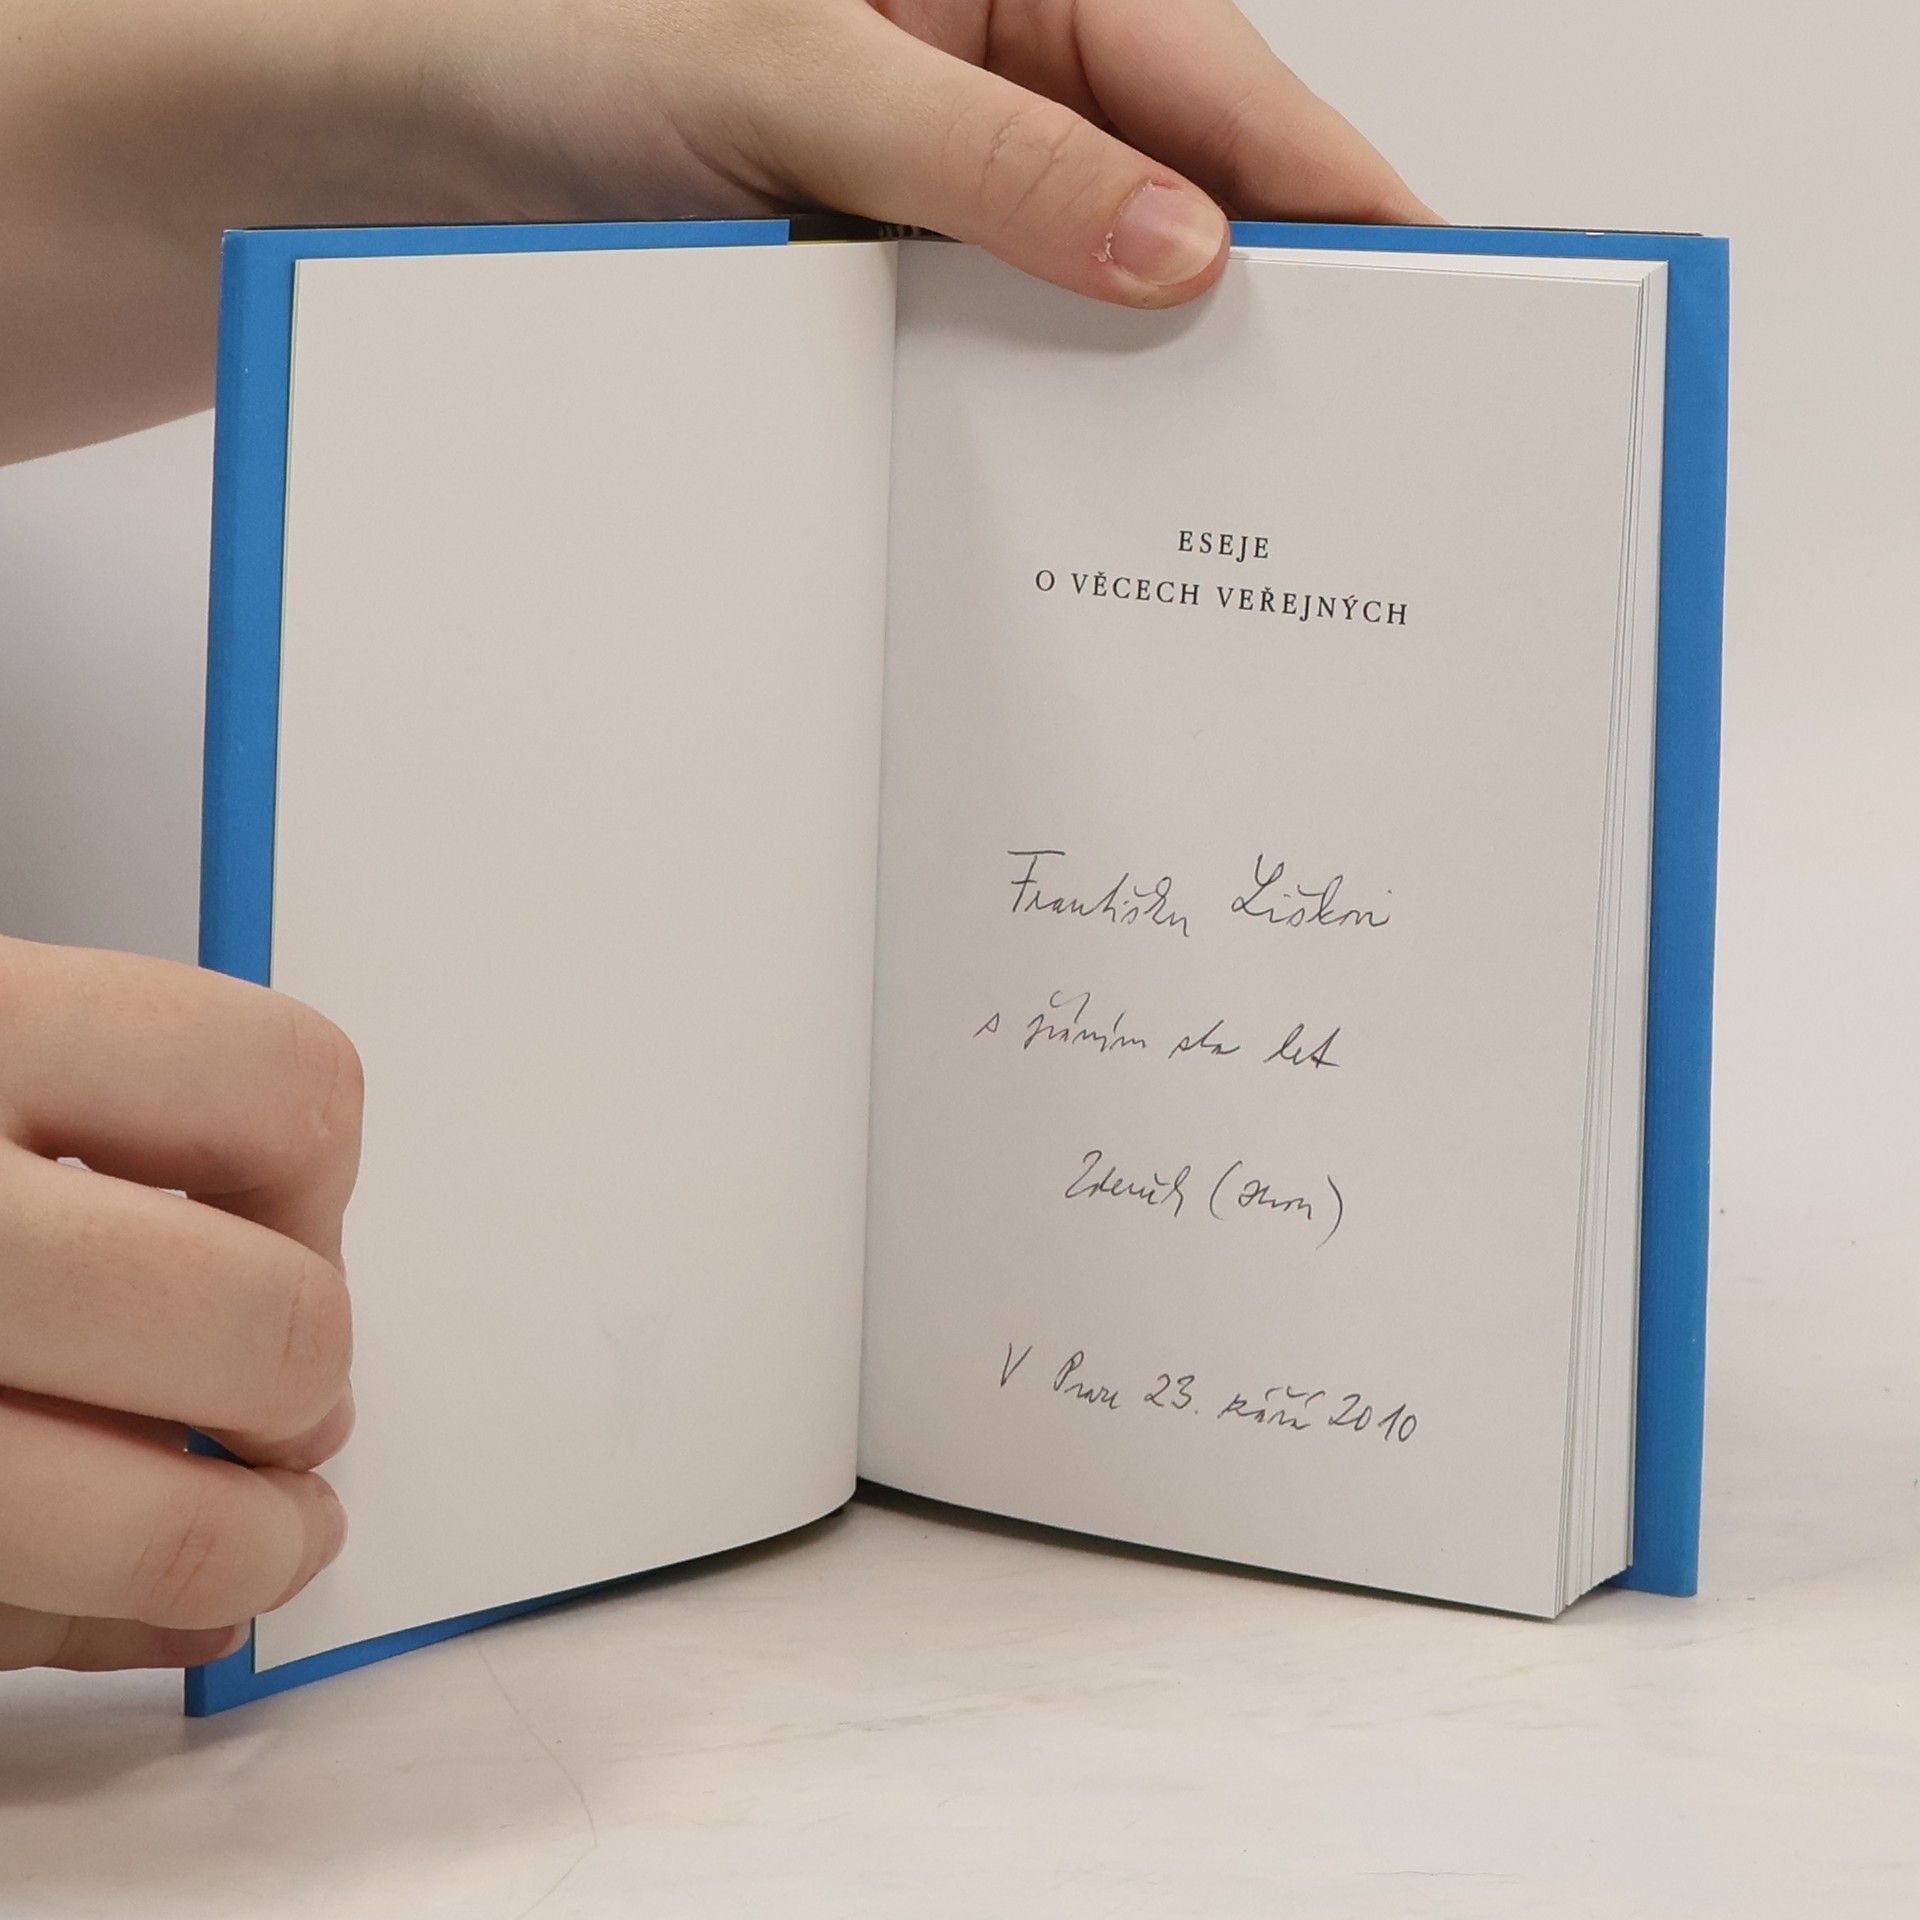 ESEJE
O VĚCECH VEŘEJNÝCH
Františku Liškovi
s přáním sta let
Zdeněk
V Praze 23. září 2010